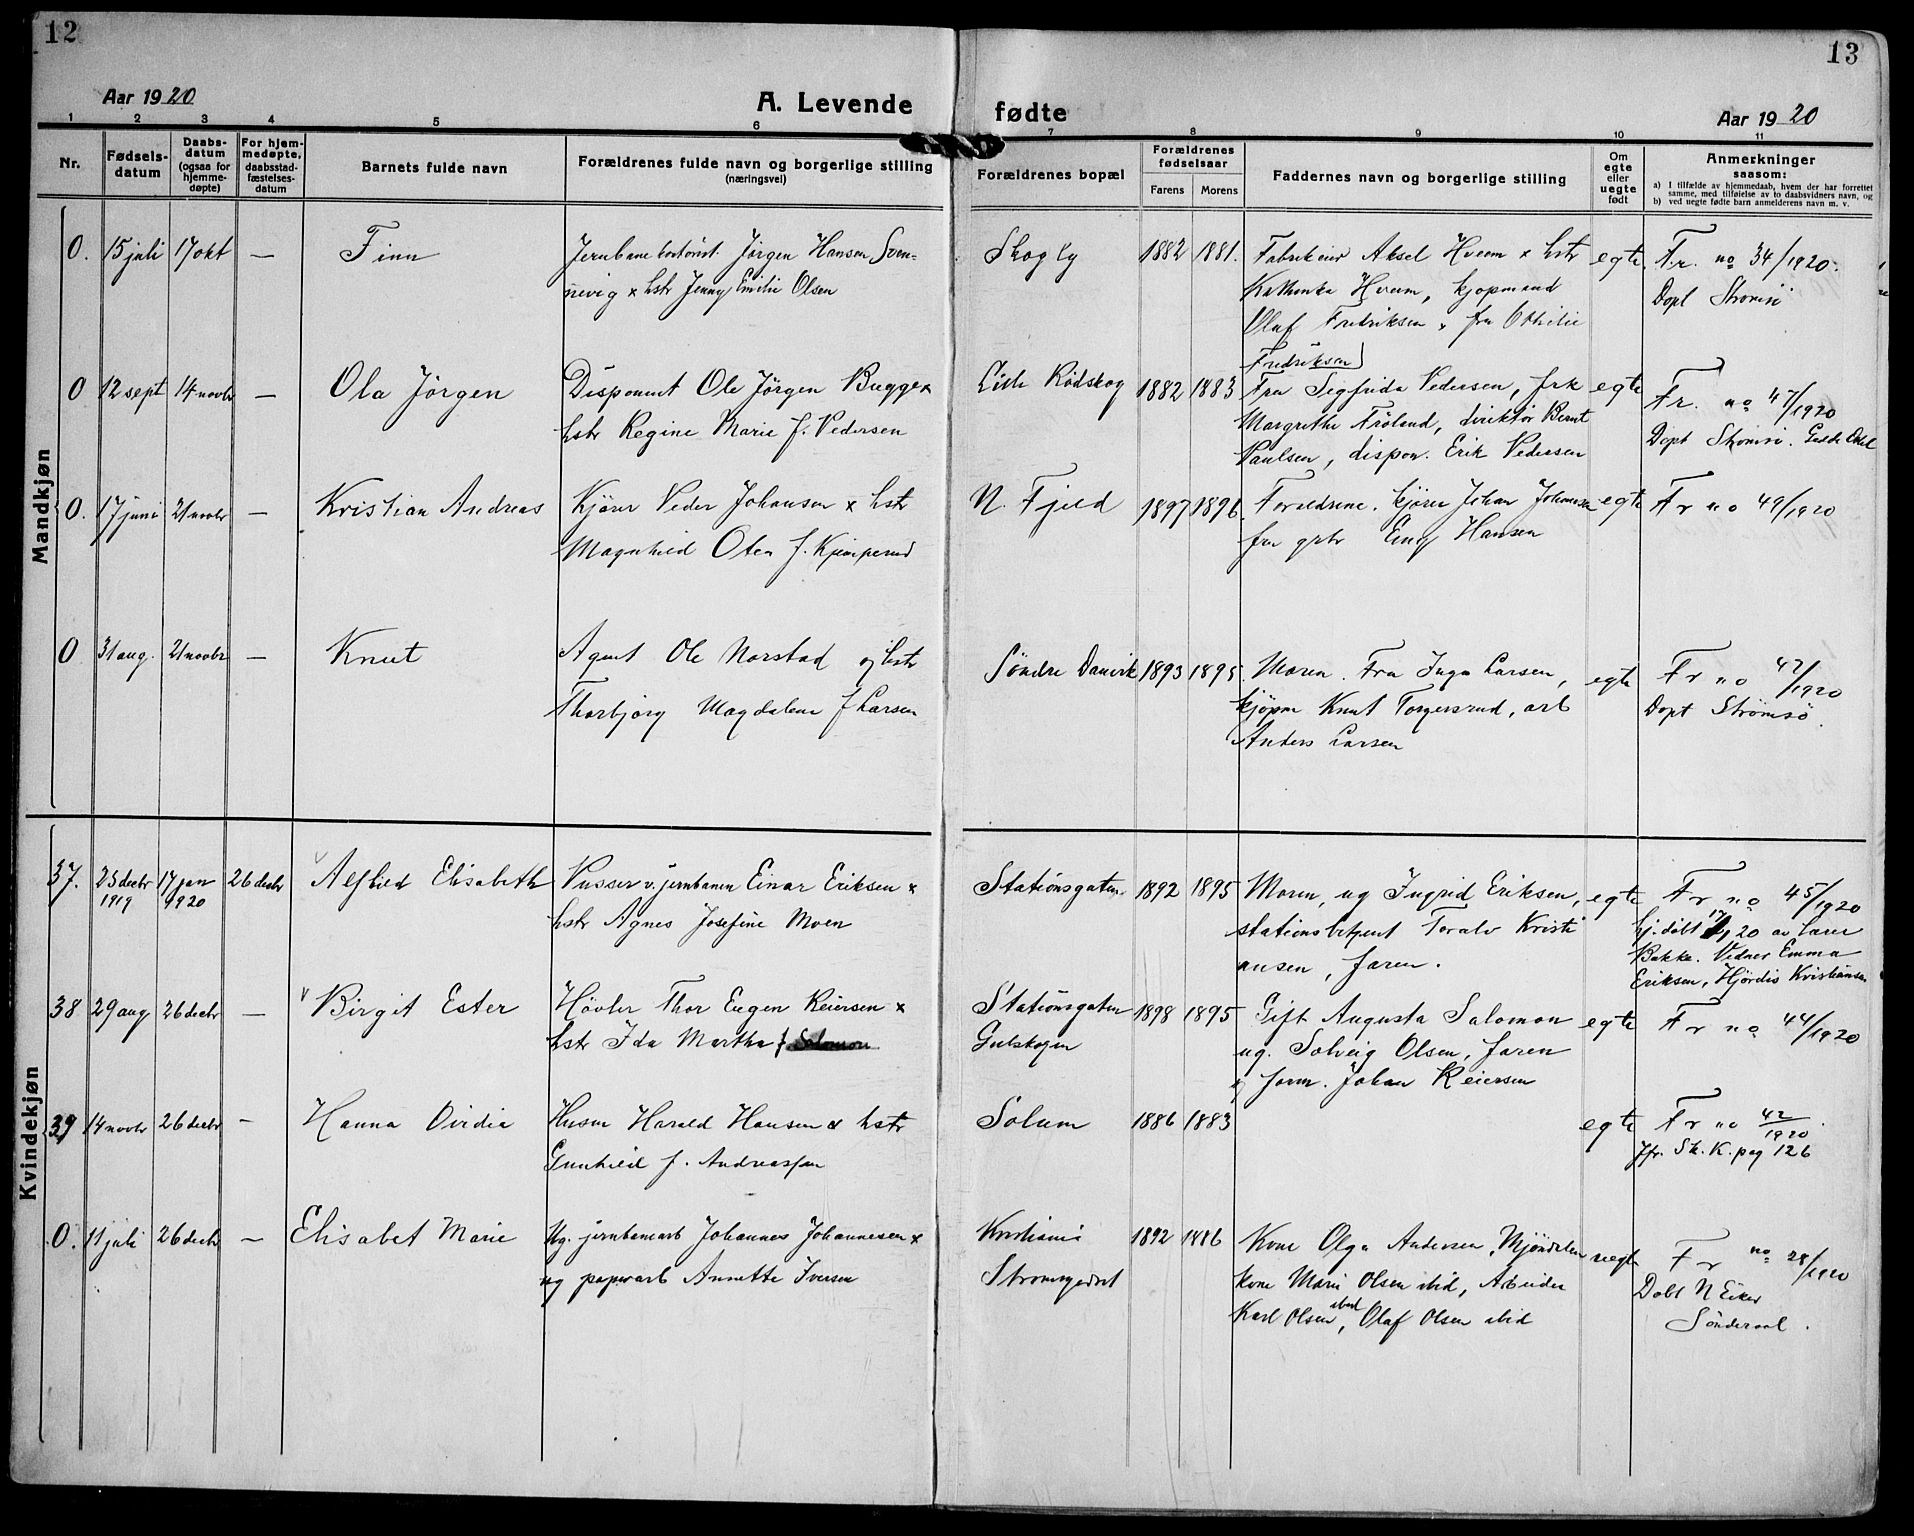 12
Aar 1920
A. Levende
1 2 3 4 5 6
Nr.
Fødsels-
datum
Daabs-
datum
(ogsaa for
hjemme-
døpte)
For hjem-
medøpte,
daabsstad-
fæstelses-
datum
Barnets fulde navn
Forældrenes fulde navn og borgerlige stilling
(næringsvei)
Mandkjøn
0. 15 juli 17 okt — Finn
Jørgen Hansen Sven-
nevig x hstr Jenny Emilie Olsen
0 12 sept 14 novbr — Ola Jörgen
Disponent Ole Jörgen Bugge x
hstr Regine Marie f. Pedersen
0. 17 juni 21 novbr — Kristian Andreas
Kjörer Peder Johansen x hstr
Magnhild Olea f.
0 31 aug. 21 novbr — Knut
Agent Ole Norstad og hstr
Thorbjørg Magdalene f Larsen
Kvindekjøn
37. 23 decbr 17 jan 26 decbr Alfhild Elisabeth
1919 1920
Pusser v. jernbanen Einar Eriksen x
hstr Agnes Josefine Moen
38 29 aug 26 decbr — Birgit Ester
Hövler Thor Eugen Reiersen x
hstr Ida Martha f Salomon
39 14 novbr 26 decbr — Hanna Ovidia
Husm Harald Hansen x hstr
Gunhild f. Andreassen
0. 11 juli 26 decbr — Elisabet Marie
Ug. jernbanearb Johannes Johannesen x
ug papirarb Annette Iversen
13
fødte
Aar 1920
7 8 9 10 11
Forældrenes bopæl
Forældrenes
fødselsaar
Farens Morens
Faddernes navn og borgerlige stilling
Om
egte
eller
uegte
født
Anmerkninger
saasom:
a) I tilfælde av hjemmedaab, hvem der har forrettet
samme, med tilføielse av to daabsvidners navn, og
b) ved uegte fødte barn anmelderens navn m. v.
Skogly 1882 1881. Fabrikeier Aksel Hveem x hstr egte. F.r. no 34/1920.
Kathinka Hveem, kjøpmand Döpt Strömsö
Olaf Fredriksen x fru Othilie
Fredriksen
Lille Rödskog 1882 1883 Fru Segfrida Pedersen, frk egte Fr. no 47/1920
Margrethe Fröland, direktör Bernt Döpt Strömsö.
Paulsen, dispon. Erik Pedersen
N. Fjeld 1897 1896. Foreldrene. kjörer Johan Johansen egte Fr no 49/1920
fru grbr Hansen
Söndre Danvik 1893 1895. Moren. Fru Inga Larsen, egte Fr no 47/1920
kjöpm Knut Torgersrud, arb Döpt Strömsö.
Anders Larsen
Stationsgaten 1892 1895 Moren, ug Ingrid Eriksen, egte Fr no 45/1920
stationsbetjent Toralv Kristi hj. döbt 20 av lærer
ansen, faren. Bakke. Vidner Emma
Eriksen, Hjördis Kristiansen
Stationsgaten 1898 1895 Gift Augusta Salomon egte Fr no 44/1920
Gulskogen ug. Solveig Olsen, faren
og form. Johan Reiersen
Solum 1886 1883 egte Fr no 42/1920.
Jfr. Sk. K. pag 126
Kristiania 1892 1886 Kone Olga Andersen, Mjöndalen uegte Fr no 28/1920
Strömsgodset kone Marie Olsen ibid, Arbeider Döbt N Eiker
Karl Olsen ibid, Olaf Olsen ibid Sönderaal.